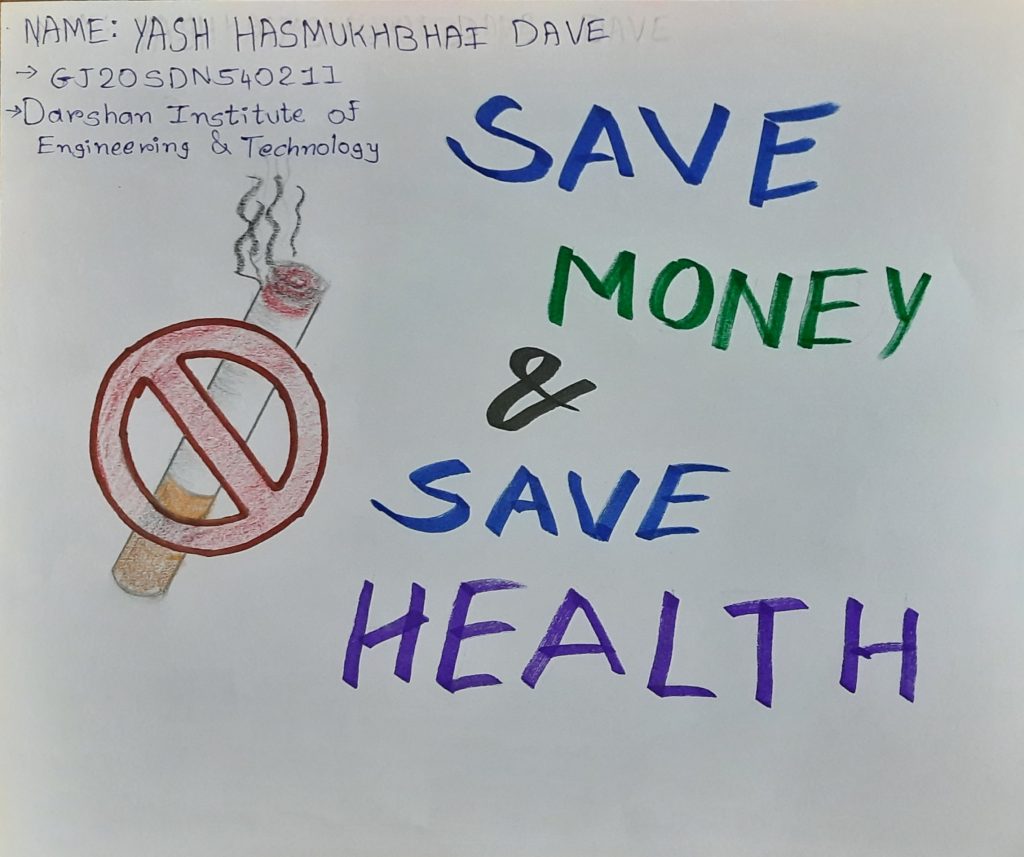 NAME: YASH HASMUKHBHAI DAVE
→ GJ20SDN540211
→ Darshan Institute of
Engineering & Technology
SAVE
MONEY
&
SAVE
HEALTH